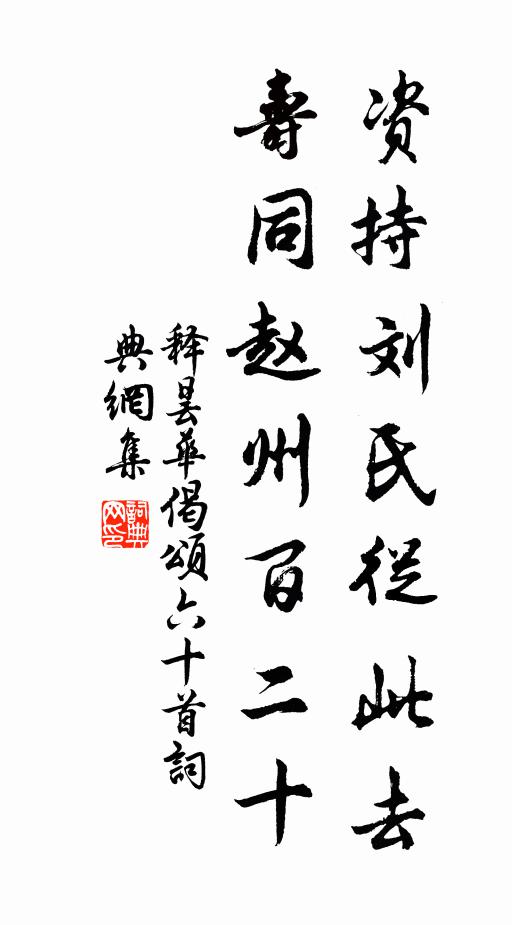 资持刘氏從此去
壽同赵州百二十
释昙華偈頌六十首詞
典網集
詞典网印